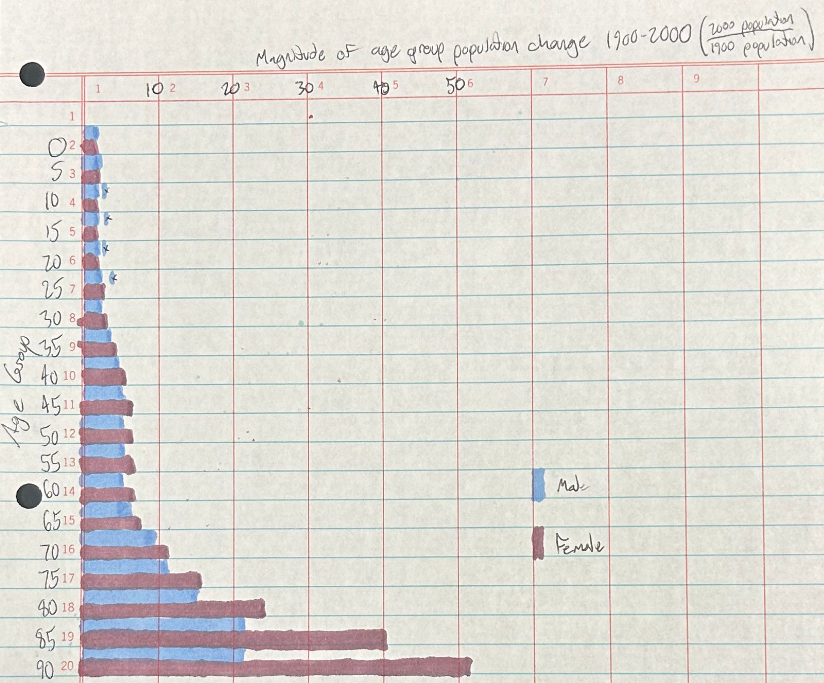 Magnitude of age group population change 1900-2000 (2000 population / 1900 population)
1 10 2 20 3 30 4 40 5 50 6 7 8 9
1
0 2
5 3
10 4
15 5
20 6
25 7
30 8
35 9
40 10
45 11
50 12
55 13
60 14
65 15
70 16
75 17
80 18
85 19
90 20
Age Group
Male
Female